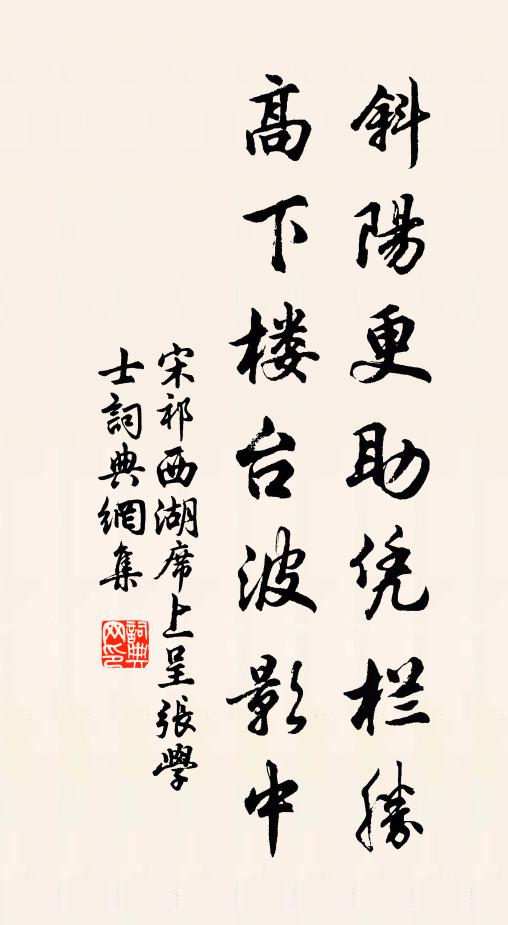 斜陽更助凭栏勝
高下楼台波影中
宋祁西湖席上呈張學
士詞典網集
詞典网印